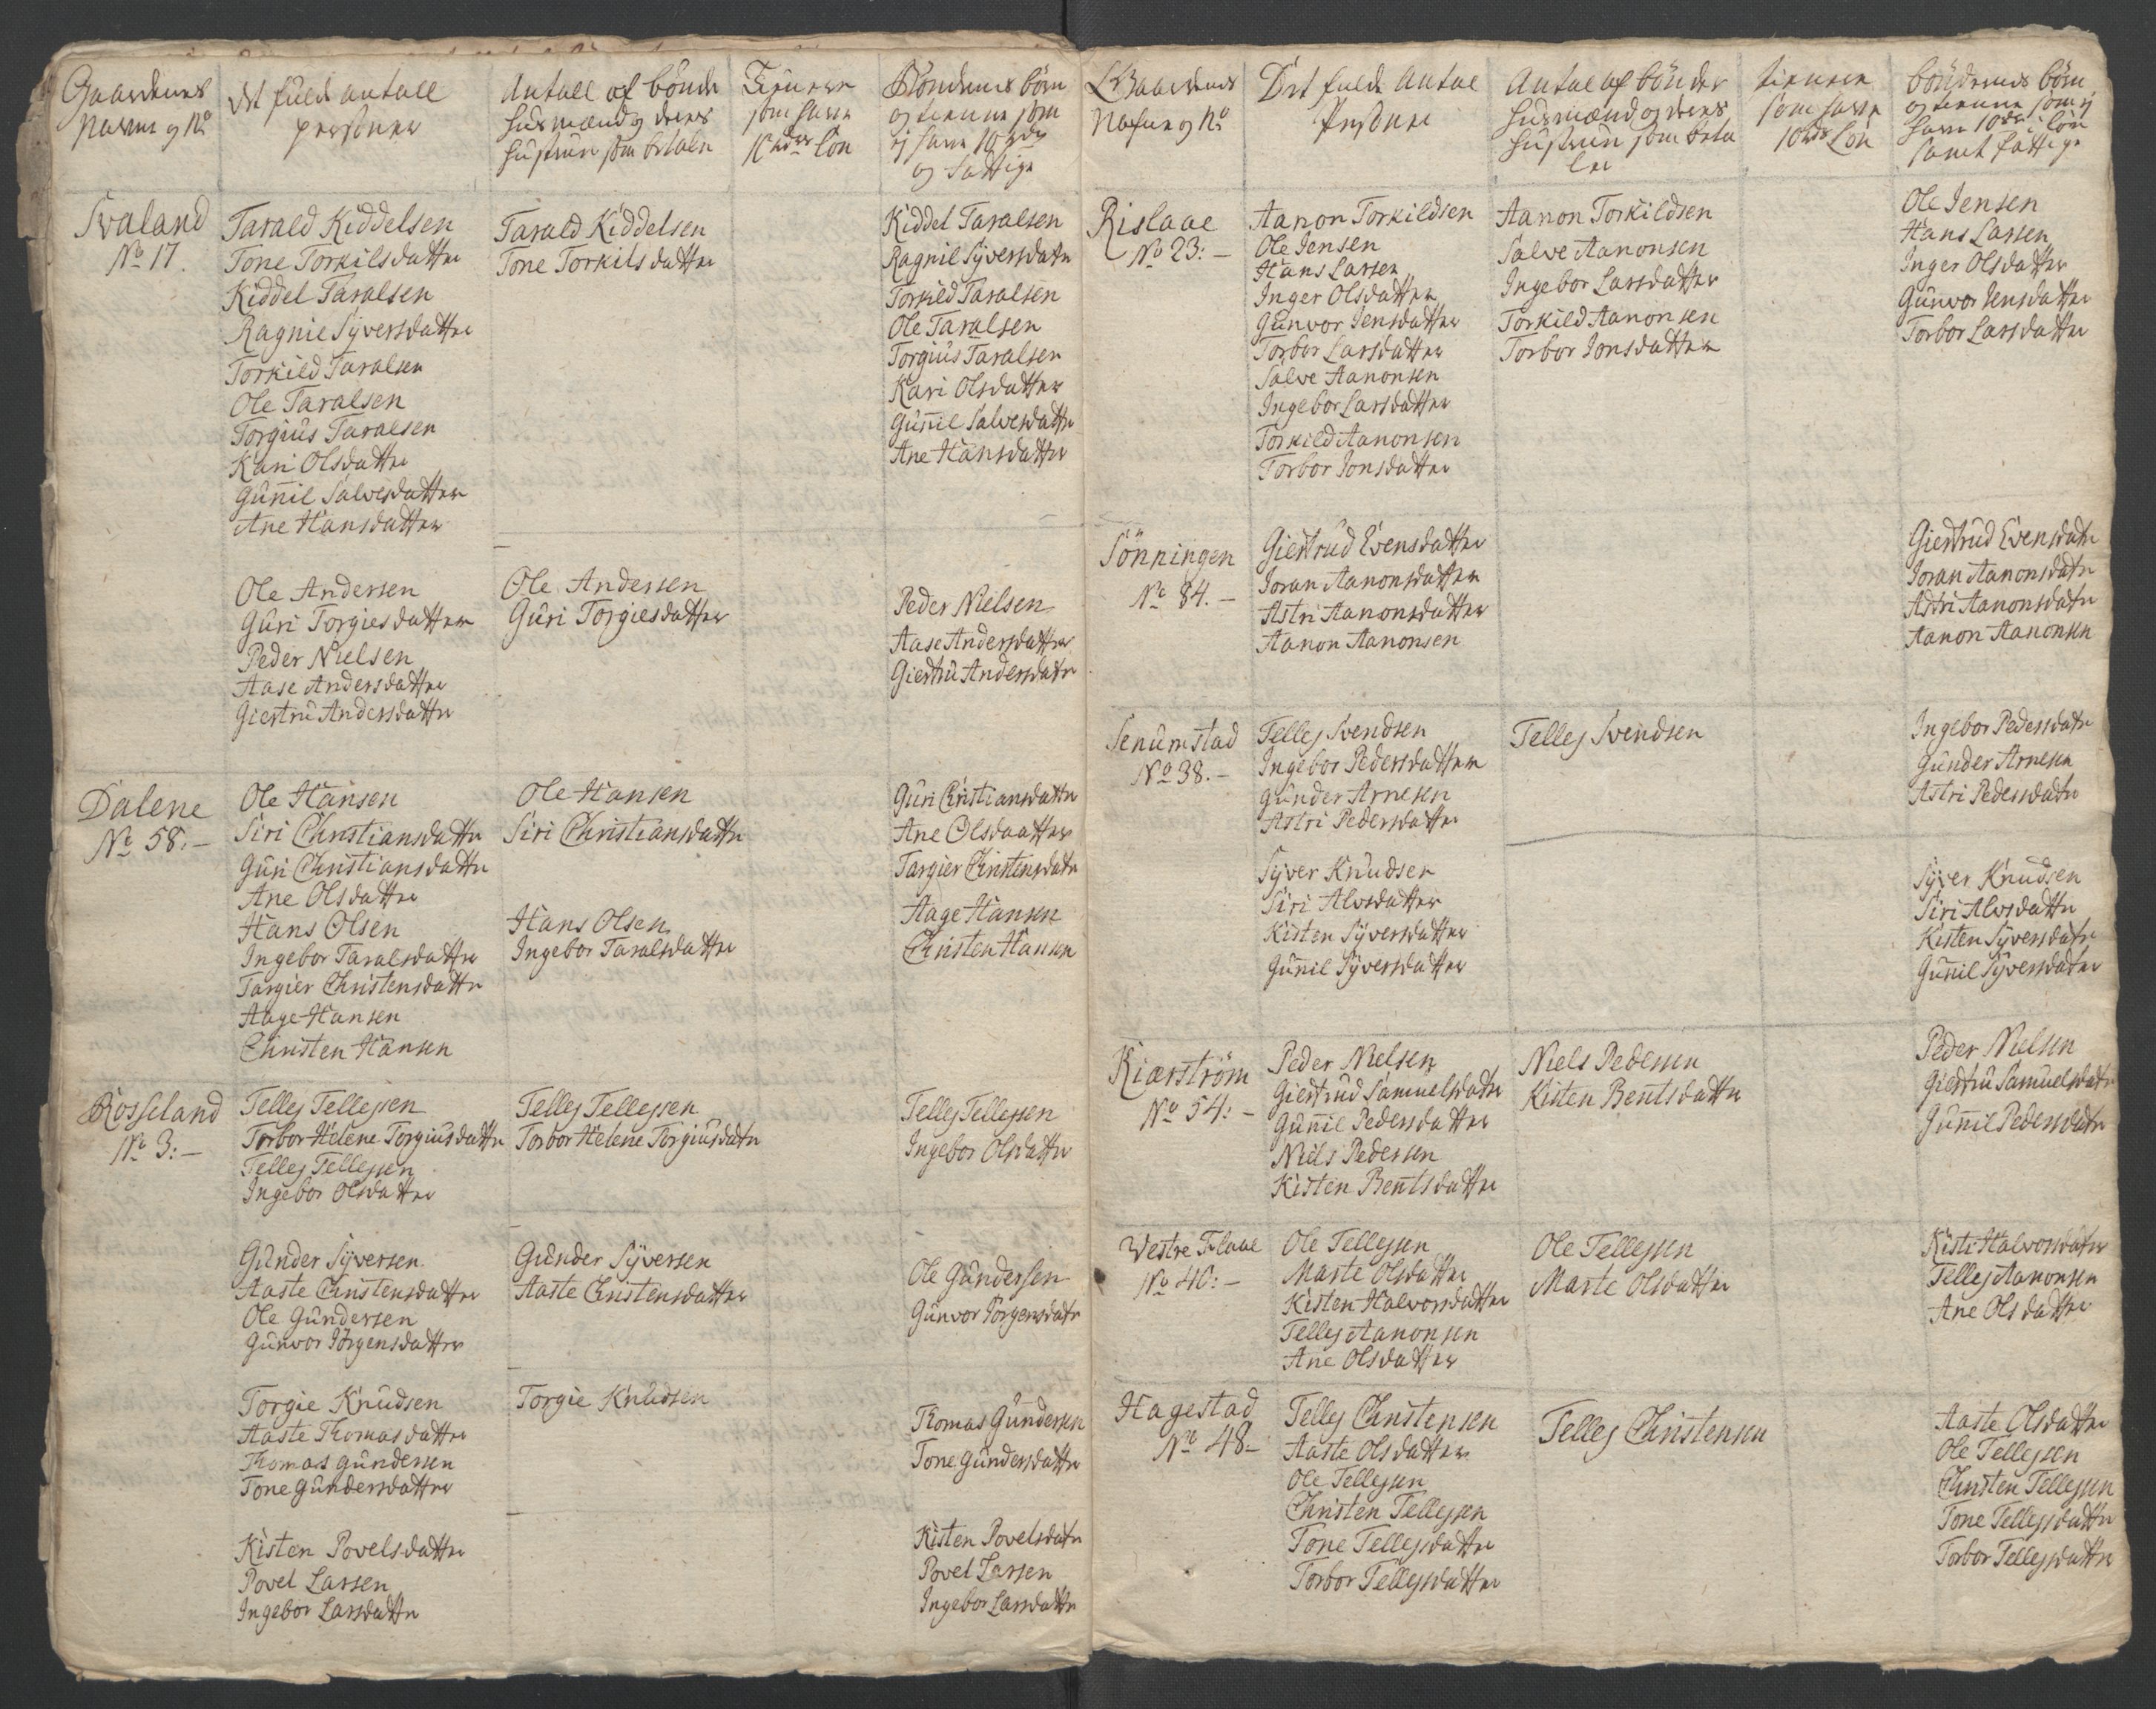 Gaardenes
Navne og No
det fulde antall
personer
Antall af bönder
husmænd og deres
hustruer som betaler
Tienere
som have
10 rdr Lön
Böndernes börn
og tienere som
ej have 10 rdr
og fattige
Svaland
No 17.
Tarald Kiddelsen
Tone Torkilsdatter
Kiddel Taralsen
Ragnie Syversdatter
Torkild Taralsen
Ole Taralsen
Torgius Taralsen
Kari Olsdatter
Gunnil Salvesdatter
Ane Hansdatter
Tarald Kiddelsen
Tone Torkilsdatter
Kiddel Taralsen
Ragnil Syversdatr
Torkild Taralsen
Ole Taralsen
Torgius Taralsen
Kari Olsdatter
Gunnil Salvesdattr
Ane Hansdatter
Ole Andersen
Guri Torgiesdatter
Peder Nielsen
Aase Andersdatter
Giertru Andersdattr
Ole Andersen
Guri Torgiesdatter
Peder Nielsen
Aase Andersdatter
Giertru Andersdatr
Dalene
No 58.-
Ole Hansen
Siri Christiansdattr
Guri Christiansdattr
Ane Olsdatter
Hans Olsen
Ingebor Taralsdatter
Targier Christensdattr
Aage Hansen
Christen Hansen
Ole Hansen
Siri Christiansdattr
Hans Olsen
Ingebor Taralsdatter
Guri Christiansdattr
Ane Olsdaatter
Targier Christensdatr
Aage Hansen
Christen Hansen
Rosseland
No 3:-
Tellej Tellejsen
Torbor Helene Torgiusdattr
Tellej Tellejsen
Ingebor Olsdatter
Tellej Tellejsen
Torbor Helene Torgiusdatr
Tellej Tellejsen
Ingebor Olsdattr
Gunder Syversen
Aaste Christensdatter
Ole Gundersen
Gunvor Jörgensdatter
Gunder Syversen
Aaste Christensdatter
Ole Gundersen
Gunvor Jörgensdatr
Torgie Knudsen
Aaste Thomasdatter
Thomas Gundersen
Tone Gundersdatter
Torgie Knudsen
Thomas Gundersen
Tone Gundersdatter
Kisten Povelsdatter
Povel Larsen
Ingebor Larsdattr
Kisten Povelsdatr
Povel Larsen
Ingebor Larsdattr
Gaardenes
Nafne og No
Det fulde Antal
Personer
Antal af bönder
husmænd og deres
hustruer som beta
ler
tienere
som have
10 rdr Lön
böndernes börn
og tienere som ej
have 10 rdr lön
samt fattige
Rislaae
No 23:-
Aanon Torkildsen
Ole Jensen
Hans Larsen
Inger Olsdatter
Gunvor Jensdatter
Torbor Larsdatter
Salve Aanonsen
Ingebor Larsdatter
Torkild Aanonsen
Torbor Jonsdatter
Aanon Torkildsen
Salve Aanonsen
Ingebor Larsdatter
Torkild Aanonsen
Torbor Jonsdatter
Ole Jensen
Hans Larsen
Inger Olsdatter
Gunvor Jensdatter
Torbor Larsdatter
Sönningen
No 84.-
Giertrud Evensdatter
Joran Aanonsdatter
Astri Aanonsdatter
Aanon Aanonsen
Giertrud Evensdatr
Joran Aanonsdatr
Astri Aanonsdatr
Aanon Aanonsen
Senumstad
No 38.-
Tellej Svendsen
Ingebor Pedersdatter
Gunder Arnesen
Astri Pedersdatter
Tellej Svendsen
Ingebor Pedersdatr
Gunder Arnesen
Astri Pedersdatr
Syver Knudsen
Siri Alvsdatter
Kisten Syversdatter
Gunnil Syversdatter
Syver Knudsen
Siri Alvsdattr
Kisten Syversdatr
Gunnil Syversdatter
Kiærström
No 54:-
Peder Nielsen
Giertrud Samuelsdatr
Gunnil Pedersdatter
Niels Pedersen
Kisten Bentsdatter
Niels Pedersen
Kisten Bentsdattr
Peder Nielsen
Giertru Samuelsdatr
Gunnil Pedersdatr
Westre Flaae
No 40:-
Ole Tellejsen
Marte Olsdatter
Kisten Halvorsdatter
Tellej Aanonsen
Ane Olsdatter
Ole Tellejsen
Marte Olsdatter
Kisti Halvorsdatr
Tellej Aanonsen
Ane Olsdatter
Hagestad
No 48-
Tellej Christensen
Aaste Olsdatter
Ole Tellejsen
Christen Tellejsen
Tone Tellejsdatter
Torbor Tellejsdatter
Tellej Christensen
Aaste Olsdatter
Ole Tellejsen
Christen Tellejsen
Tone Tellejsdattr
Torbor Tellejsdattr